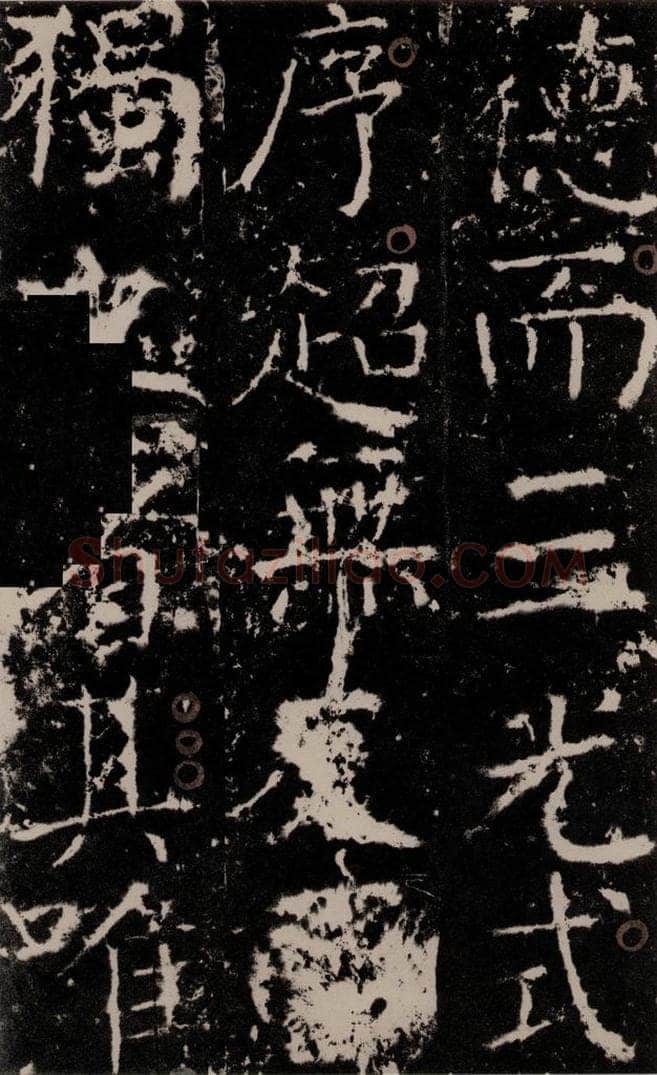 德而三光式
序超無
獨其唯
Shufaziliao.com